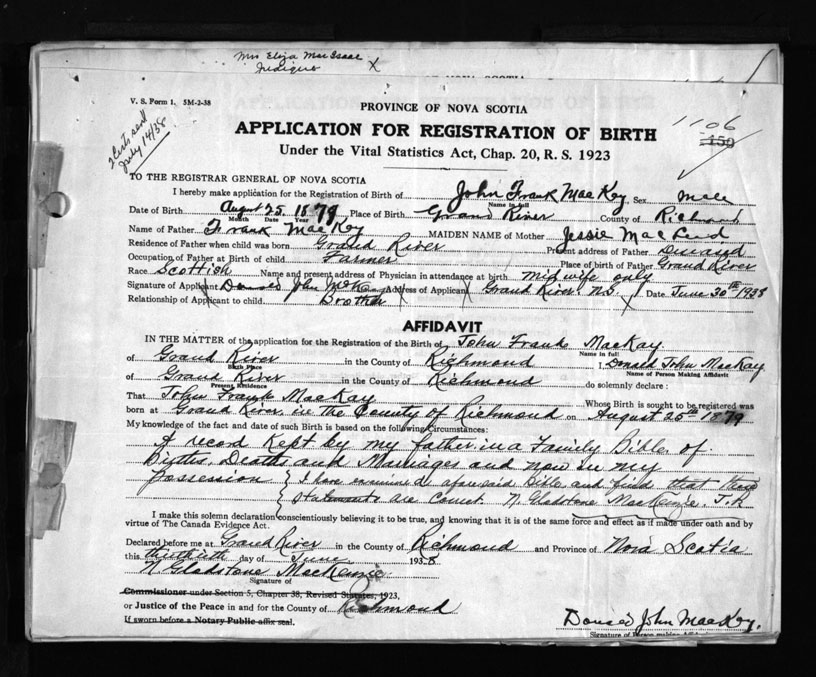 Mrs Eliza MacIsaac
X
V. S. Form 1. 5M-2-38
PROVINCE OF NOVA SCOTIA
1106
450
APPLICATION FOR REGISTRATION OF BIRTH
2 Certs sent
July 14/38
Under the Vital Statistics Act, Chap. 20, R. S. 1923
TO THE REGISTRAR GENERAL OF NOVA SCOTIA
I hereby make application for the Registration of Birth of John Frank MacKay Sex male
Name in full
Date of Birth August 25. 1879 Place of Birth Grand River County of Richmond
Month Date Year
Name of Father Frank MacKay MAIDEN NAME of Mother Jessie MacLeod
Residence of Father when child was born Grand River Present address of Father Deceased
Occupation of Father at Birth of child Farmer Place of birth of Father Grand River
Race Scottish Name and present address of Physician in attendance at birth midwife only
Signature of Applicant Donald John McKay Address of Applicant Grand River. N.S. Date June 30th 1938
Relationship of Applicant to child Brother
AFFIDAVIT
IN THE MATTER of the application for the Registration of the Birth of John Frank MacKay.
Name in full
of Grand River in the County of Richmond I, Donald John MacKay
Birth Place Name of Person Making Affidavit
of Grand River in the County of Richmond do solemnly declare:
Present Residence
That John Frank MacKay Whose Birth is sought to be registered was
born at Grand River, in the County of Richmond on August 25th 1879
My knowledge of the fact and date of such Birth is based on the following Circumstances:
A record kept by my father in a Family Bible of
Births, Deaths and Marriages and now in my
possession I have examined aforesaid Bible and find that these
statements are correct. N. Gladstone MacKenzie. J.P.
I make this solemn declaration conscientiously believing it to be true, and knowing that it is of the same force and effect as if made under oath and by
virtue of The Canada Evidence Act.
Declared before me at Grand River in the County of Richmond and Province of Nova Scotia
this thirtieth day of June 1938
N. Gladstone MacKenzie
Signature of
Commissioner under Section 5, Chapter 38, Revised Statutes, 1923,
or Justice of the Peace in and for the County of Richmond
If sworn before a Notary Public affix seal.
Donald John MacKay.
Signature of Person making